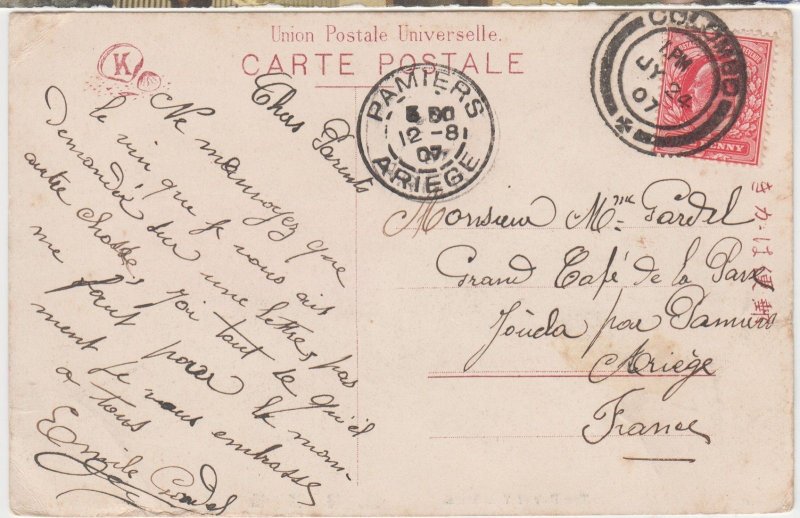 Union Postale Universelle.
CARTE POSTALE
K
COLOMBO
1 PM
JY 24
07
PENNY
PAMIERS
12 - 8
07
ARIÈGE
Chers Parents
Ne m'envoyez que
le vin que je vous ais
Demander sur une lettre, pas
autre Chosse, j'ai tout ce qu'il
me faut pour le mom-
ment je vous embrasse
a tous
Emile Gardel
Monsieur Mme Gardel
Grand Café de la Paix
par Pamiers
Ariège
France
きがは便郵